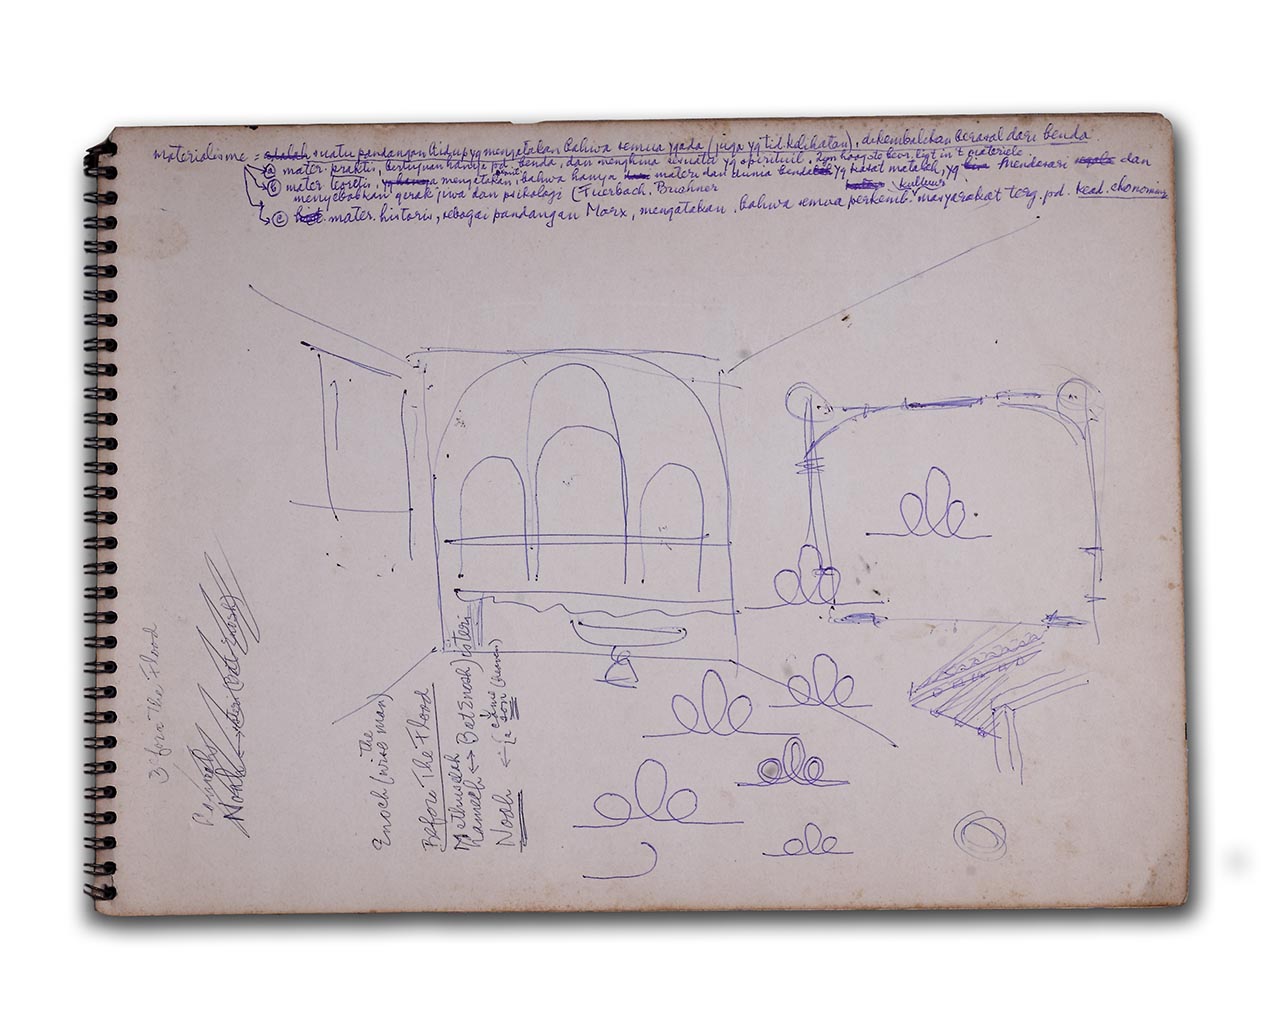 materialisme = suatu pandangan hidup yg mengatakan bahwa semua yg ada (juga yg tid. kelihatan), dikembalikan berasal dari benda
a mater. praktis, bertujuan hanya pd. benda, dan menghina sesuatu yg spirituil. Zyn hoogste levr. ligt in 't materiele
b mater. teoretis, mengatakan, bahwa hanya materi dan dunia benda yg kasat matalah, yg mendasari dan
menyebabkan gerak jiwa dan psikologi (Fuerbach. Bruchner
c mater. historis, sebagai pandangan Marx, mengatakan. bahwa semua perkemb. kultuur masyarakat terg. pd. kead. ekonomi
Before The Flood
Noah
Enoch (the wise man)
Before The Flood
Methuselah
Lamech ↔ BatEnosh) isteri
Noah